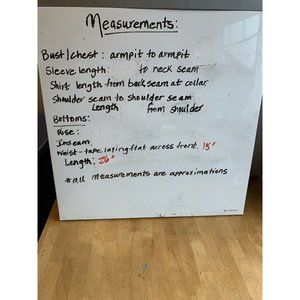 Measurements:
Bust/chest: armpit to armpit
Sleeve length: to neck seam
Shirt length from back seam at collar
Shoulder seam to shoulder seam
Length from shoulder
Bottoms:
Rise:
Inseam:
Waist - tape laying flat across front. 15"
Length: 26"
*all measurements are approximations